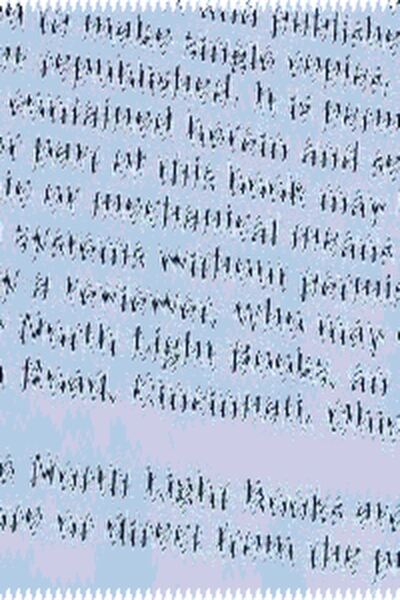 to make single copies.
republished. It is perm
contained herein and se
or part of this book may
ic or mechanical means
systems without permis
y a reviewer, who may
North Light Books, an
Road, Cincinnati, Ohio
North Light Books are
ore or direct from the p